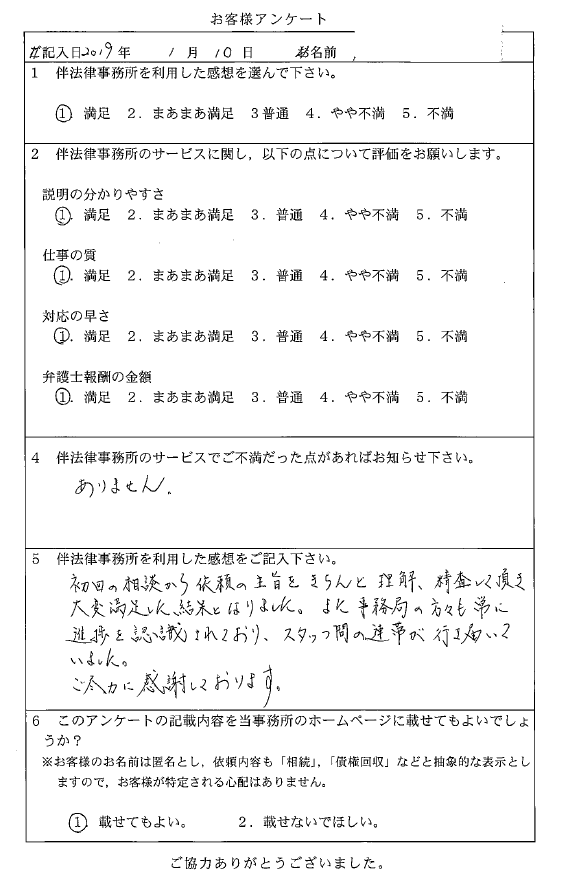 お客様アンケート
ご記入日2019年 1月10日 お名前
1 伴法律事務所を利用した感想を選んで下さい。
①. 満足 2. まあまあ満足 3普通 4. やや不満 5. 不満
2 伴法律事務所のサービスに関し, 以下の点について評価をお願いします。
説明の分かりやすさ
①. 満足 2. まあまあ満足 3. 普通 4. やや不満 5. 不満
仕事の質
①. 満足 2. まあまあ満足 3. 普通 4. やや不満 5. 不満
対応の早さ
①. 満足 2. まあまあ満足 3. 普通 4. やや不満 5. 不満
弁護士報酬の金額
①. 満足 2. まあまあ満足 3. 普通 4. やや不満 5. 不満
4 伴法律事務所のサービスでご不満だった点があればお知らせ下さい。
ありません。
5 伴法律事務所を利用した感想をご記入下さい。
初回の相談から依頼の主旨をきちんと理解、精査して頂き
大変満足した結果となりました。また事務局の方々も常に
進捗を認識されており、スタッフ間の連帯が行き届いて
いました。
ご尽力に感謝しております。
6 このアンケートの記載内容を当事務所のホームページに載せてもよいでしょ
うか?
※お客様のお名前は匿名とし, 依頼内容も「相続」,「債権回収」などと抽象的な表示とし
ますので, お客様が特定される心配はありません。
①. 載せてもよい。 2. 載せないでほしい。
ご協力ありがとうございました。